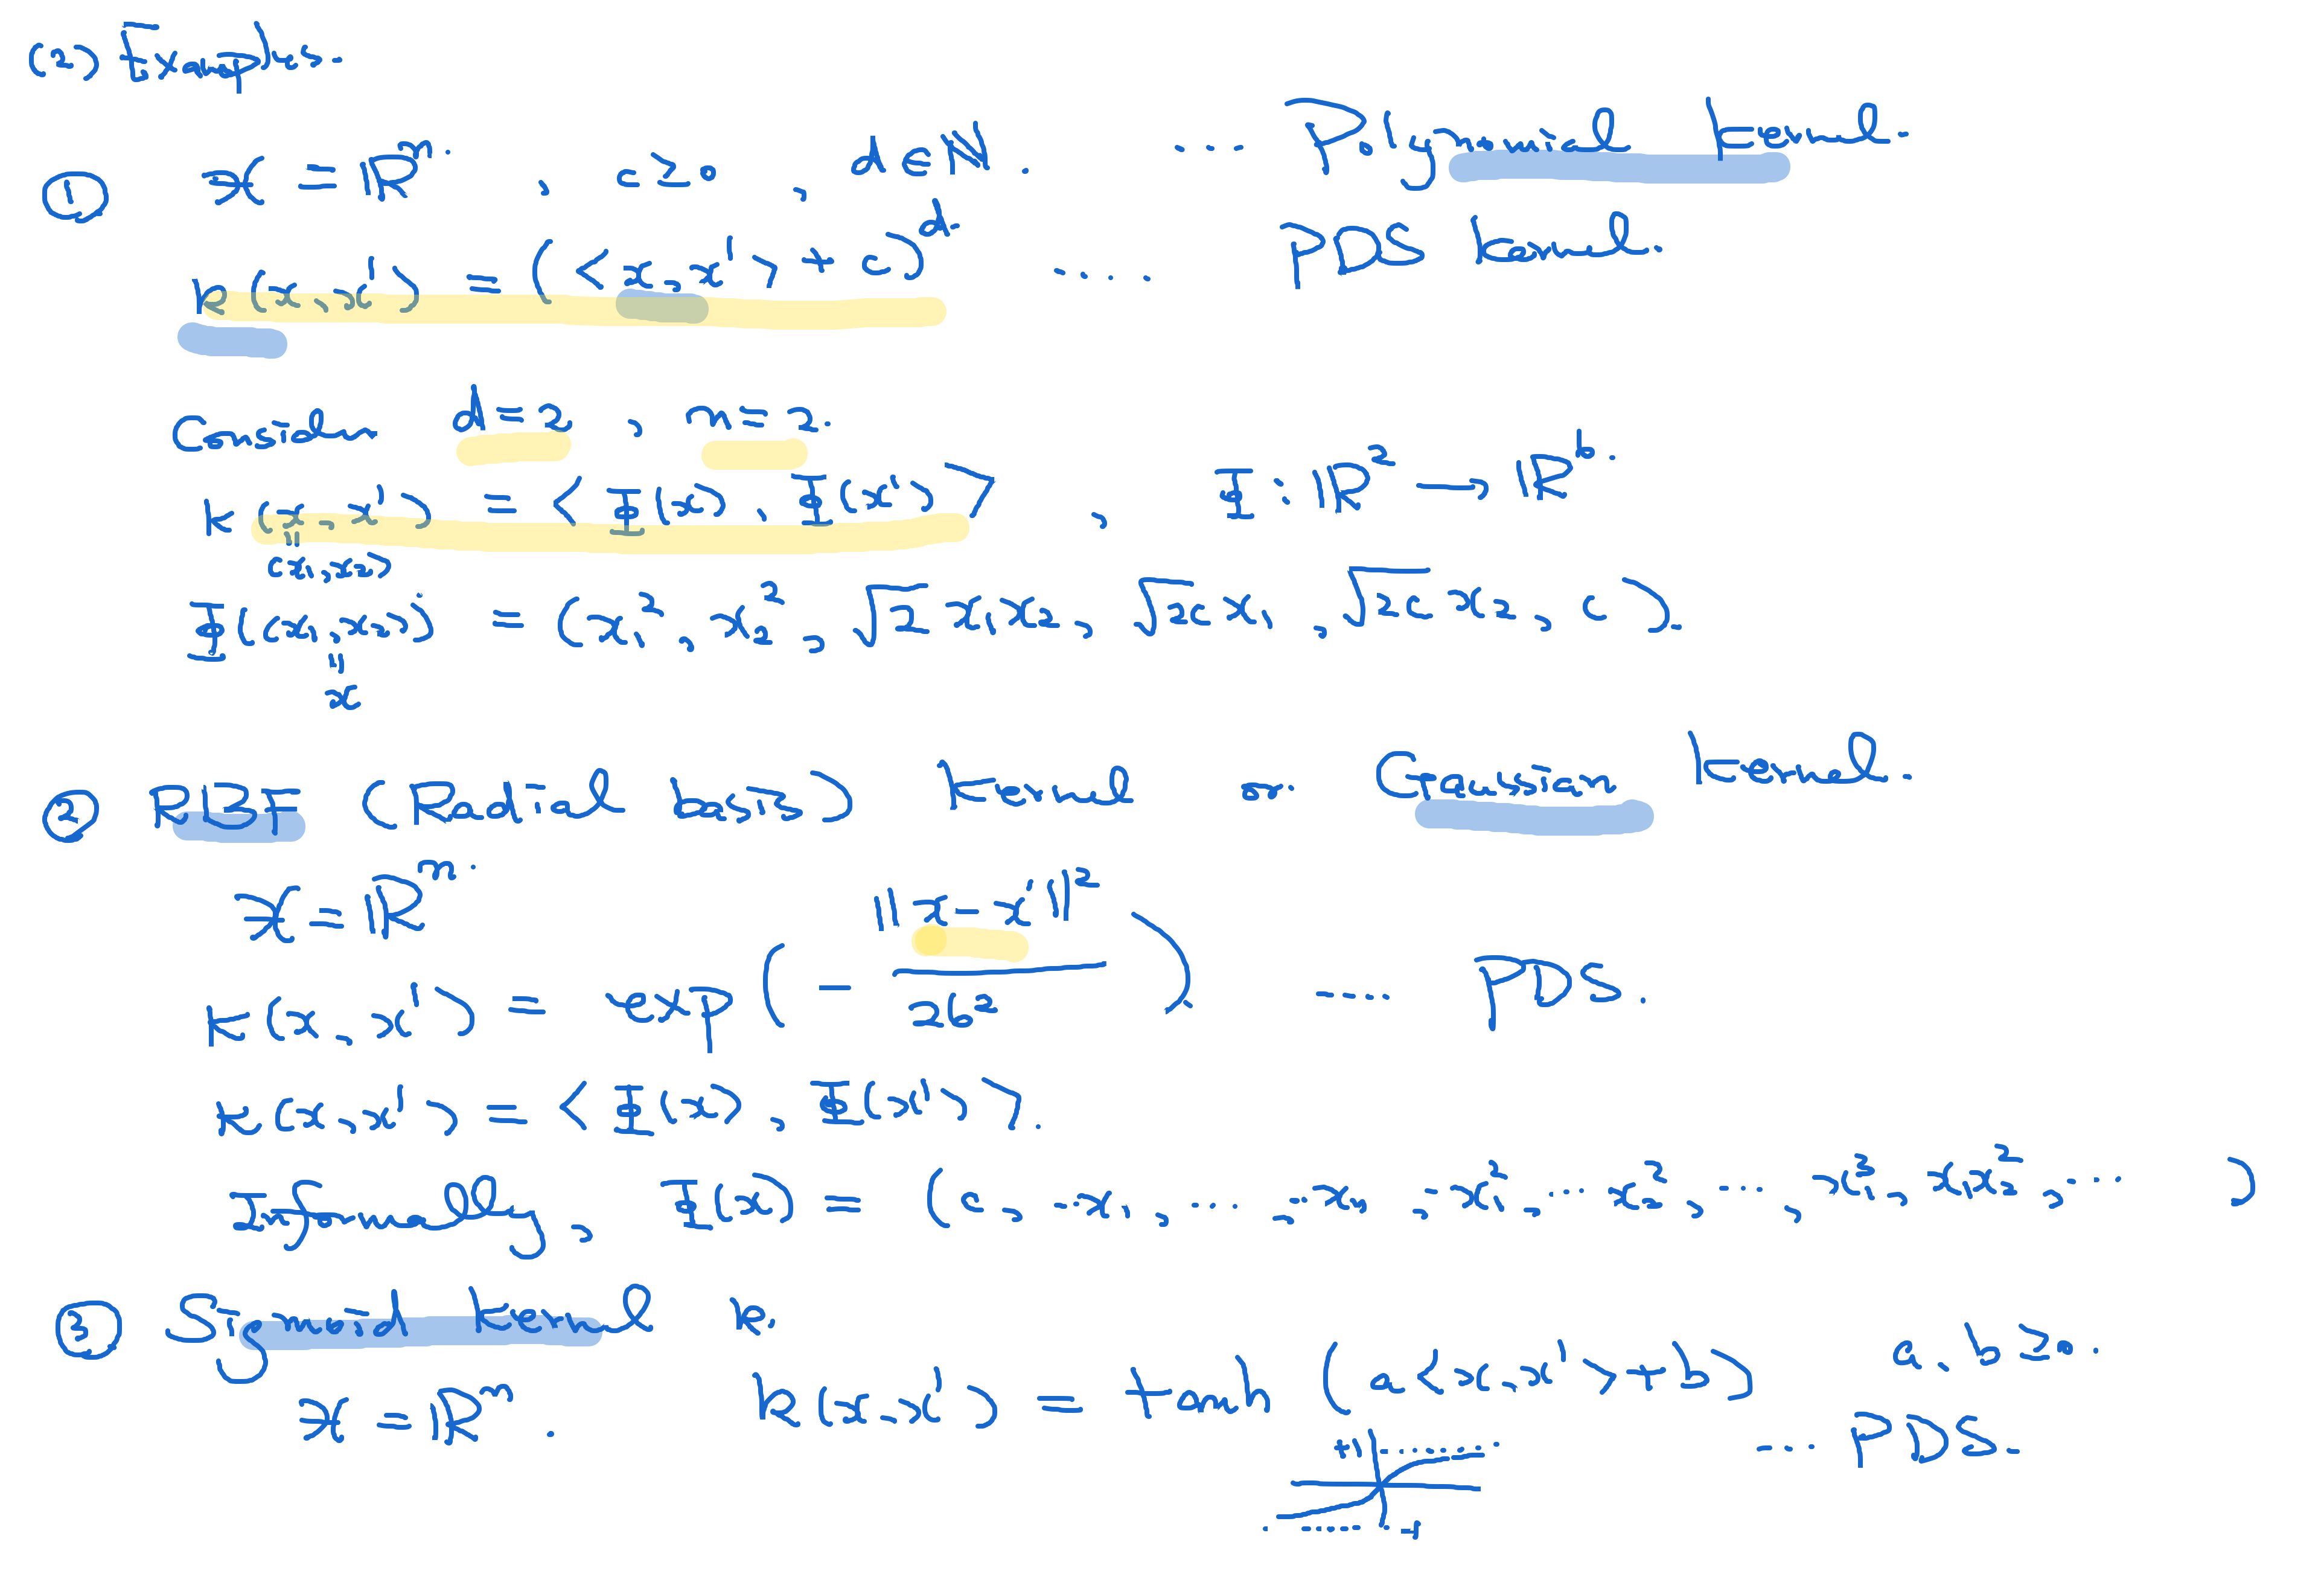 (2) Examples.
① 𝒳 = ℝⁿ, c ≥ 0, d ∈ ℕ. .... Polynomial kernel.
K(x, x') = (<x, x'> + c)^d .... PDS kernel.
Consider d = 2, n = 2.
K(x, x') = <Φ(x), Φ(x')>, Φ : ℝ² → ℝ⁶.
"
(x₁, x₂)
Φ((x₁, x₂)) = (x₁², x₂², √2 x₁x₂, √2c x₁, √2c x₂, c).
"
x
② RBF (Radial basis) kernel or Gaussian kernel.
𝒳 = ℝⁿ.
K(x, x') = exp(- ||x - x'||² / 2σ²) .... PDS.
K(x, x') = <Φ(x), Φ(x')>.
Informally, Φ(x) = (c, ..x₁, ...., ..xₙ, ..x₁², ... xₙ², ..., x₁³, x₁x₂², ... )
③ Sigmoid kernel K.
𝒳 = ℝⁿ. K(x, x') = tanh(a<x, x'> + b) a, b ≥ 0.
.... PDS.
+1
-1